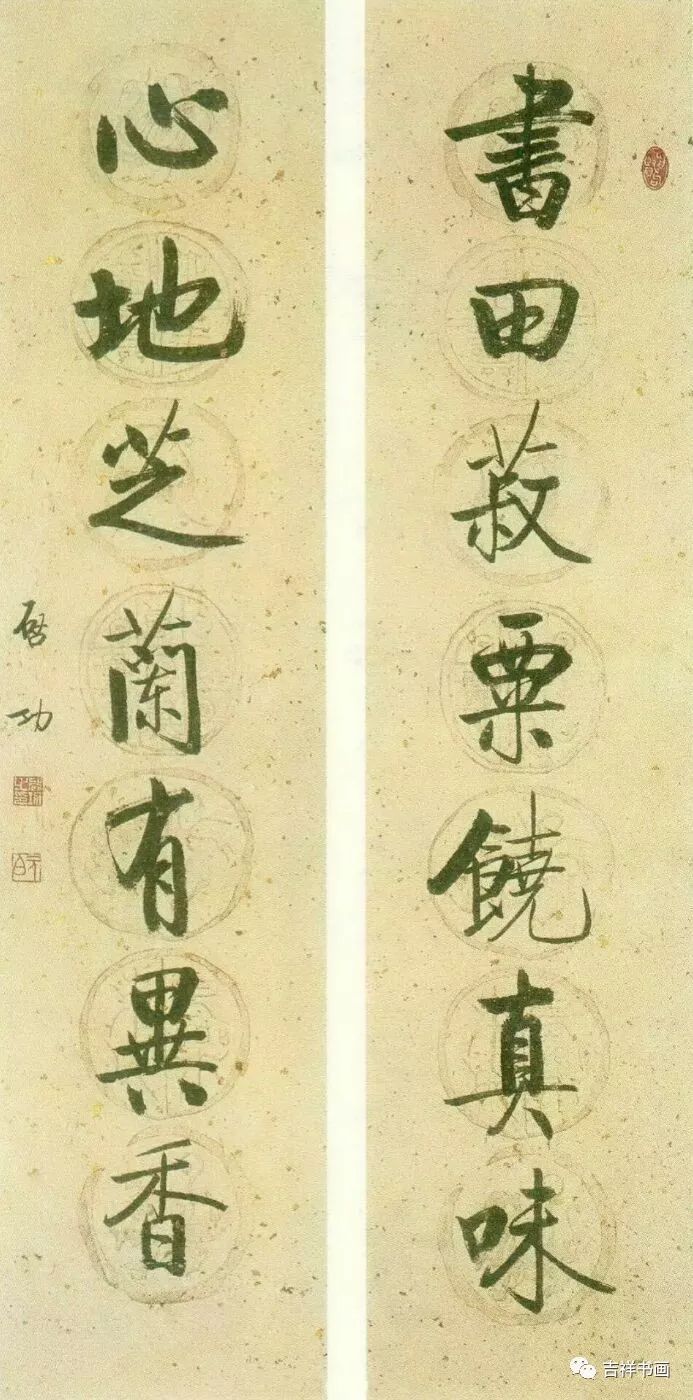 書田菽粟饒真味
心地芝蘭有異香
啓功
吉祥书画